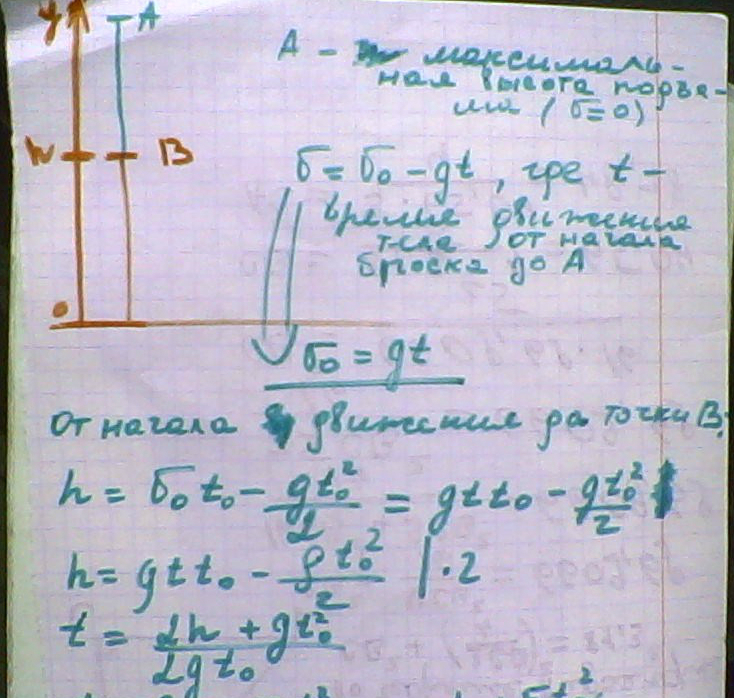 y A
A - максималь-
ная высота подъё-
ма (υ=0)
h B
υ = υ₀ - gt, где t -
время движения
тела от начала
броска до A
0
υ₀ = gt
От начала движения да точки B:
h = υ₀t₀ - gt₀²/2 = gtt₀ - gt₀²/2
h = gtt₀ - gt₀²/2 |·2
t = 2h + gt₀²/2gt₀